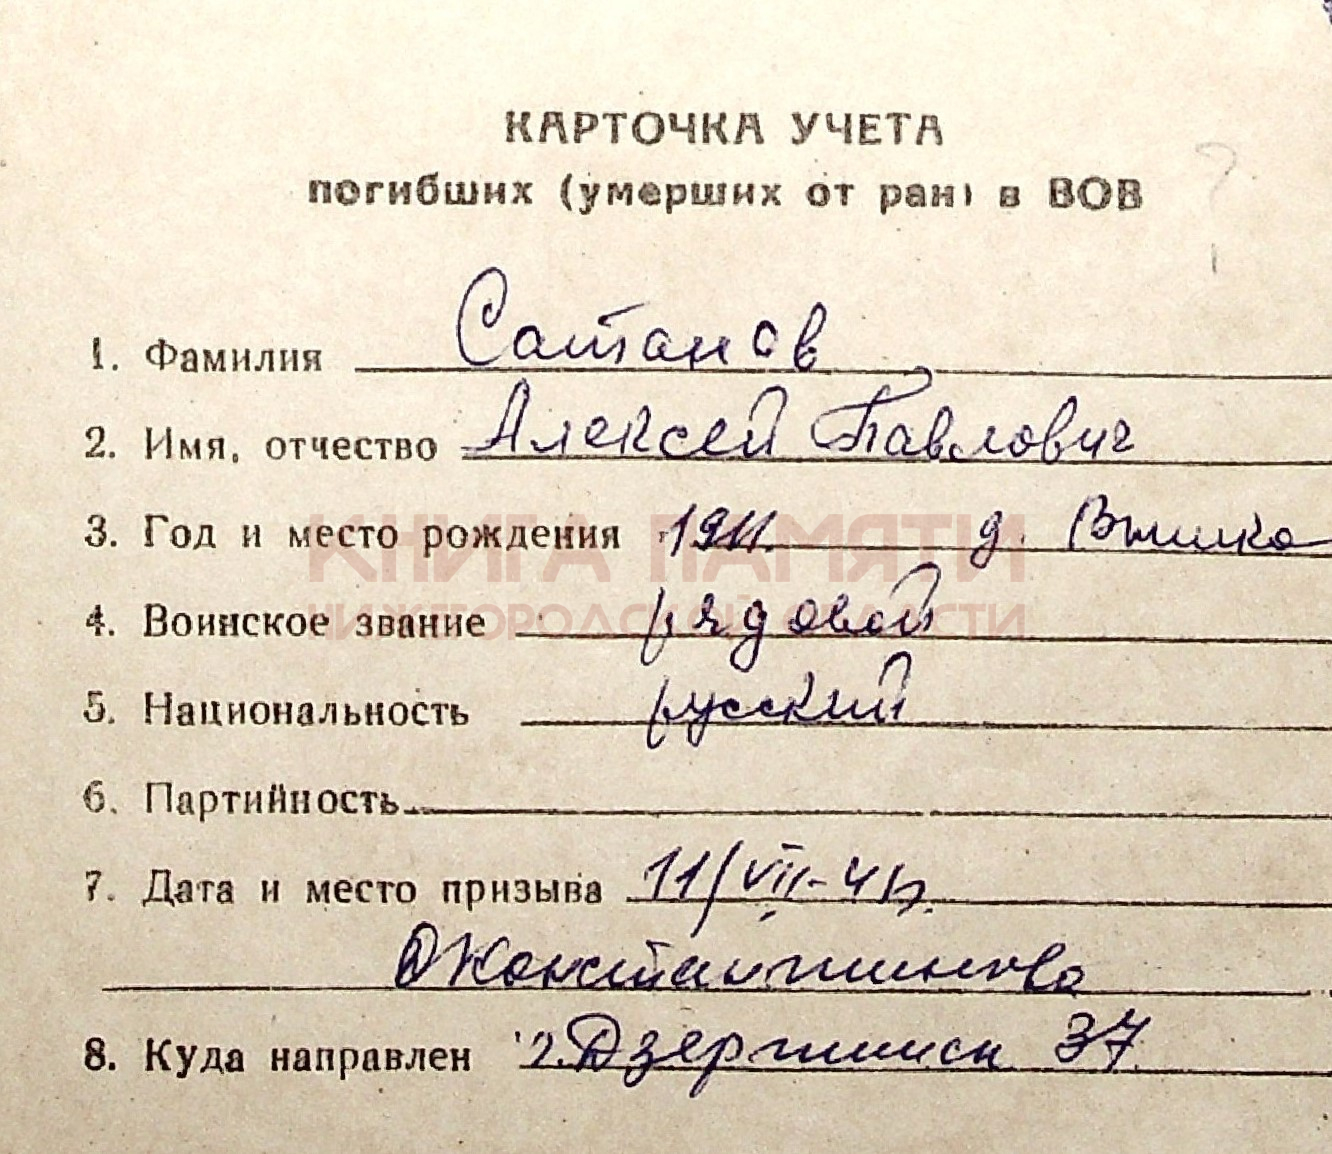 КАРТОЧКА УЧЕТА
погибших (умерших от ран) в ВОВ
?
1. Фамилия Сатанов
2. Имя, отчество Алексей Павлович
3. Год и место рождения 1911. д.
КНИГА ПАМЯТИ
4. Воинское звание рядовой
НИЖЕГОРОДСКОЙ ОБЛАСТИ
5. Национальность русский
6. Партийность
7. Дата и место призыва 11/VII-41г.
8. Куда направлен г. Дзержинск 37